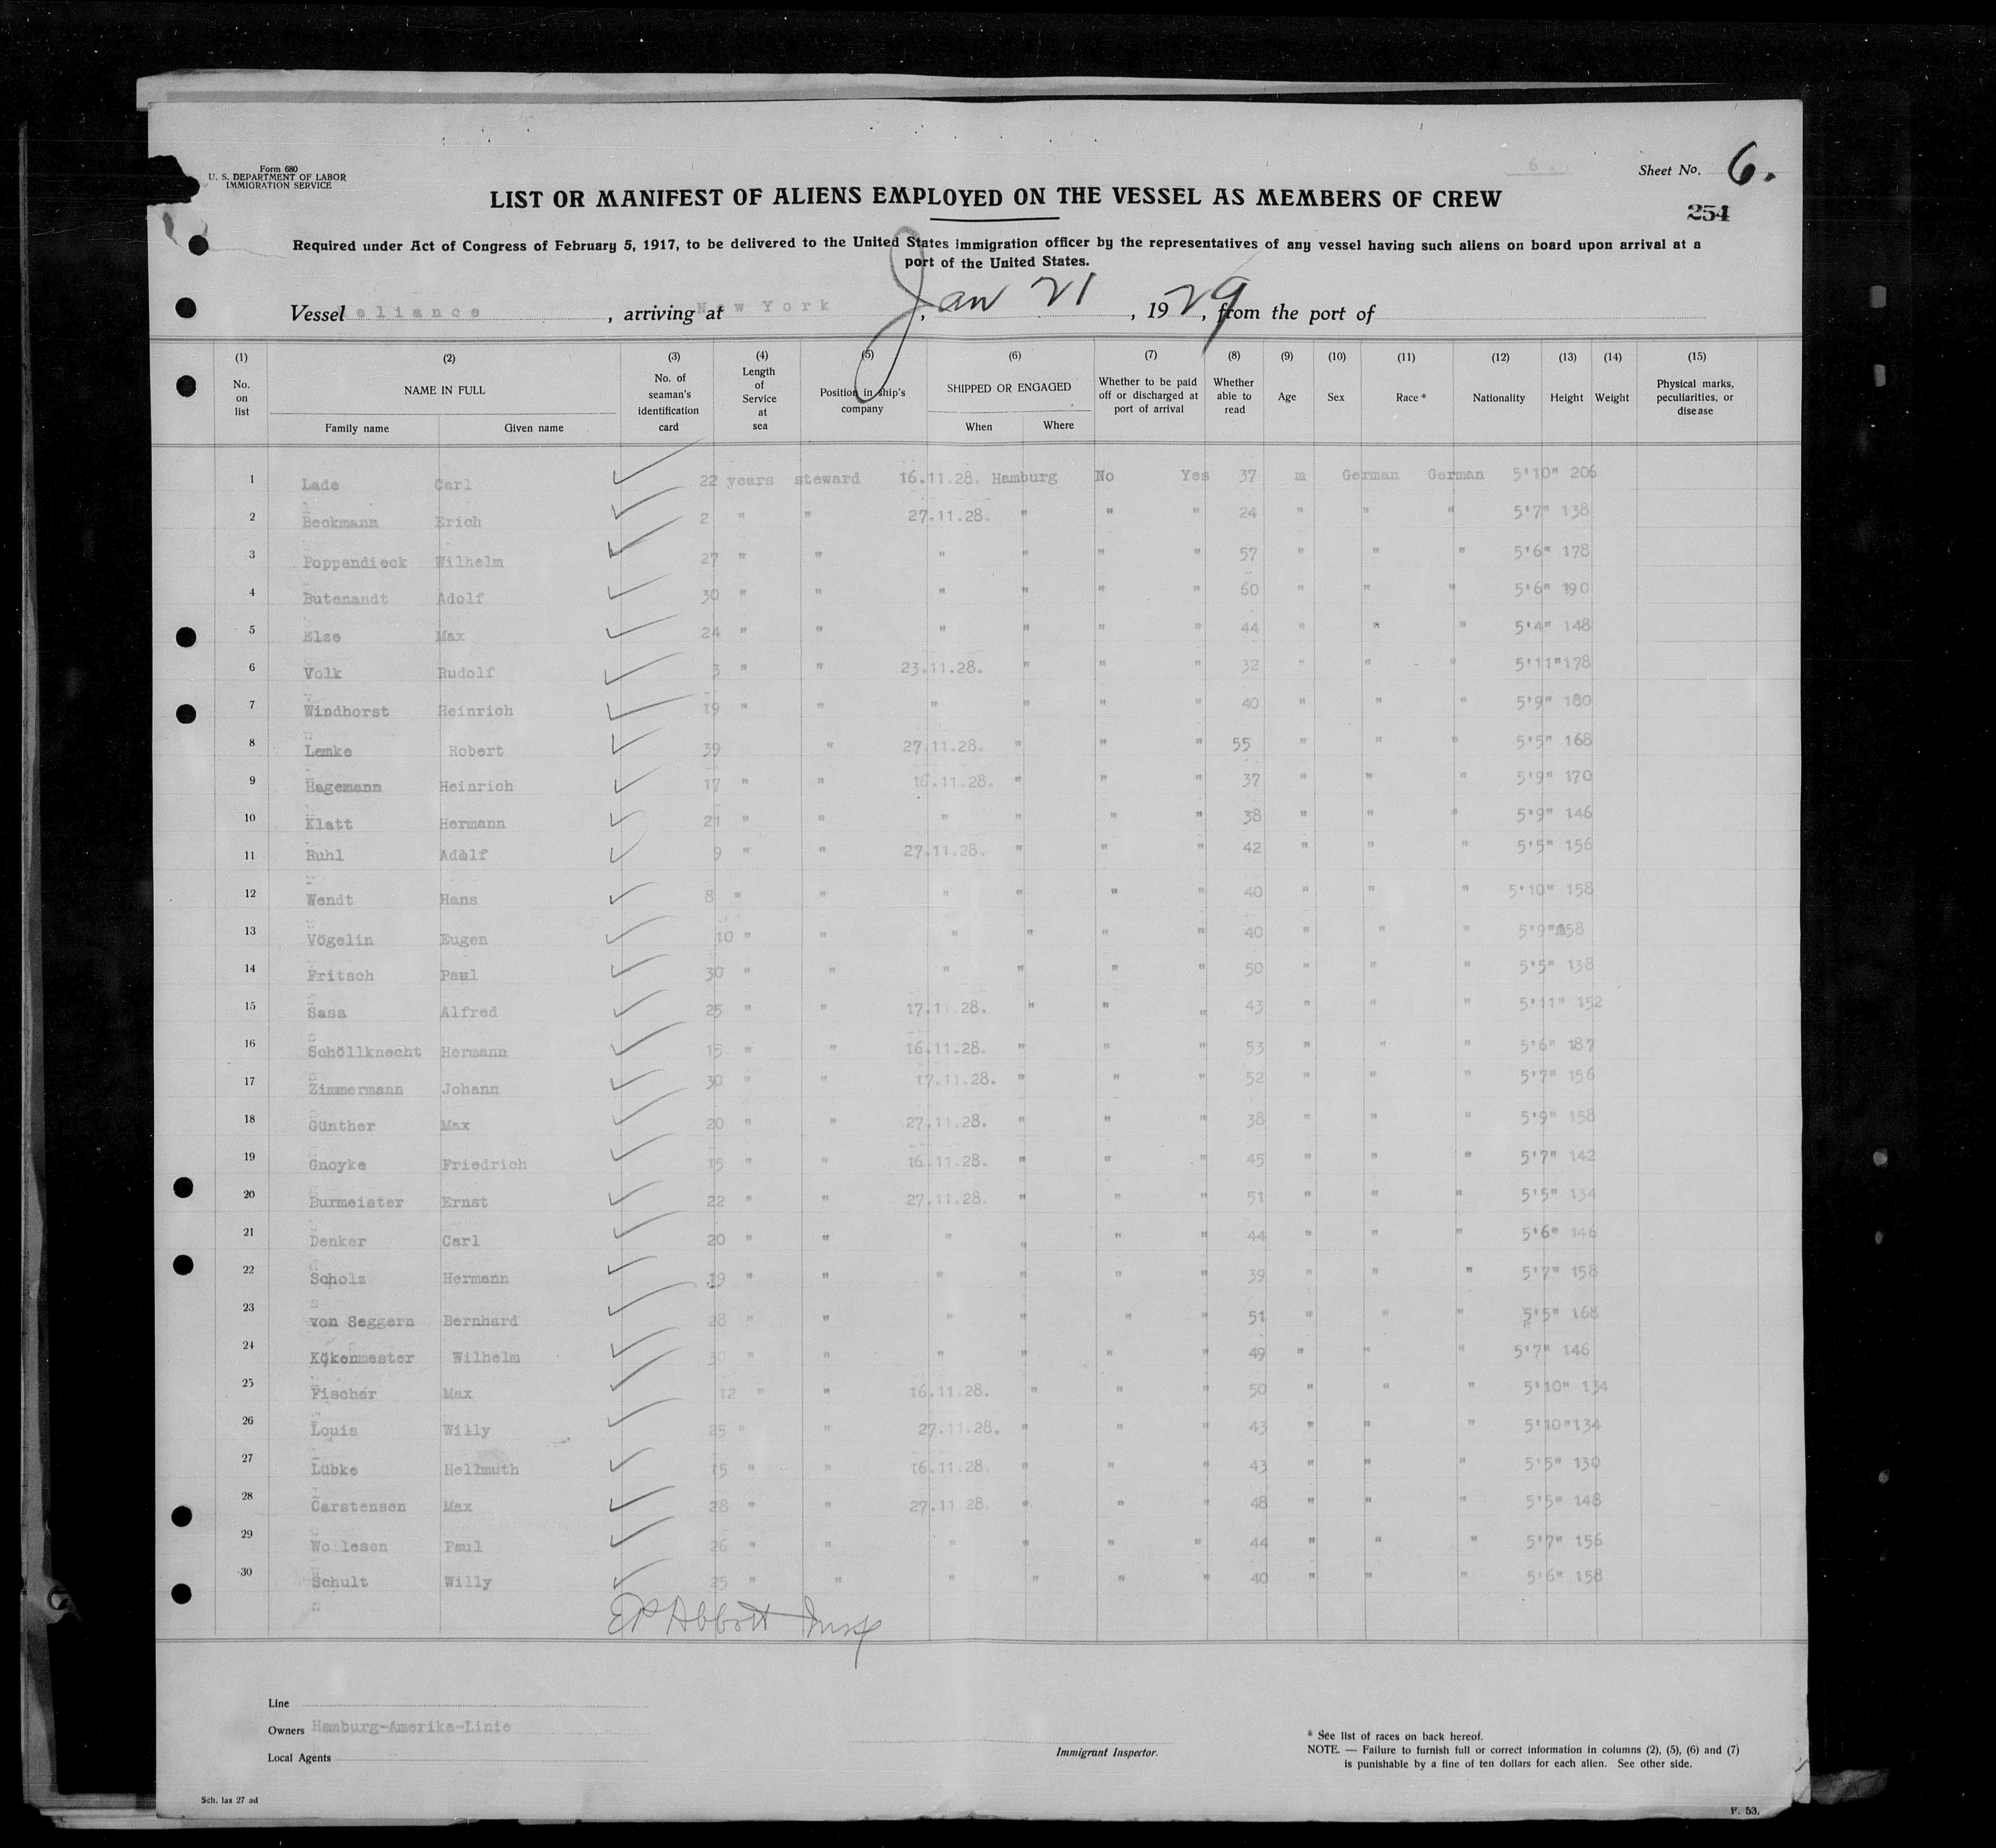 Form 680
U. S. DEPARTMENT OF LABOR
IMMIGRATION SERVICE
6.
Sheet No. 6.
LIST OR MANIFEST OF ALIENS EMPLOYED ON THE VESSEL AS MEMBERS OF CREW
254
Required under Act of Congress of February 5, 1917, to be delivered to the United States immigration officer by the representatives of any vessel having such aliens on board upon arrival at a
port of the United States.
Vessel eliance, arriving at New York, Jan 21, 1929, from the port of
(1) (2) (3) (4) (5) (6) (7) (8) (9) (10) (11) (12) (13) (14) (15)
No. on list NAME IN FULL Family name Given name No. of seaman's identification card Length of Service at sea Position in ship's company SHIPPED OR ENGAGED When Where Whether to be paid off or discharged at port of arrival Whether able to read Age Sex Race * Nationality Height Weight Physical marks, peculiarities, or disease
1 Lade Carl 22 years steward 16.11.28. Hamburg No Yes 37 m German German 5'10" 206
2 Beckmann Erich 2 " " 27.11.28. " " " 24 " " " 5'7" 138
3 Poppendieck Wilhelm 27 " " " " " " 57 " " " 5'6" 178
4 Butenandt Adolf 30 " " " " " " 60 " " " 5'6" 190
5 Elze Max 24 " " " " " " 44 " " " 5'4" 148
6 Volk Rudolf 3 " " 23.11.28. " " " 32 " " " 5'11" 178
7 Windhorst Heinrich 19 " " " " " " 40 " " " 5'9" 180
8 Lemke Robert 39 " 27.11.28. " " " 55 " " " 5'5" 168
9 Hagemann Heinrich 17 " " 16.11.28. " " " 37 " " " 5'9" 170
10 Klatt Hermann 21 " " " " " " 38 " " " 5'9" 146
11 Ruhl Adolf 9 " " 27.11.28. " " " 42 " " " 5'5" 156
12 Wendt Hans 8 " " " " " " 40 " " " 5'10" 158
13 Vögelin Eugen 10 " " " " " " 40 " " " 5'9" 158
14 Fritsch Paul 30 " " " " " " 50 " " " 5'5" 138
15 Sass Alfred 25 " " 17.11.28. " " " 43 " " " 5'11" 152
16 Schöllknecht Hermann 15 " " 16.11.28. " " " 53 " " " 5'6" 187
17 Zimmermann Johann 30 " " 17.11.28. " " " 52 " " " 5'7" 156
18 Günther Max 20 " " 27.11.28. " " " 38 " " " 5'9" 158
19 Gnoyke Friedrich 15 " " 16.11.28. " " " 45 " " " 5'7" 142
20 Burmeister Ernst 22 " " 27.11.28. " " " 51 " " " 5'5" 134
21 Denker Carl 20 " " " " " " 44 " " " 5'6" 146
22 Scholz Hermann 19 " " " " " " 39 " " " 5'7" 158
23 von Seggern Bernhard 28 " " " " " " 51 " " " 5'5" 168
24 Kökenmester Wilhelm 30 " " " " " " 49 " " " 5'7" 146
25 Fischer Max 12 " " 16.11.28. " " " 50 " " " 5'10" 134
26 Louis Willy 25 " " 27.11.28. " " " 43 " " " 5'10" 134
27 Lübke Hellmuth 15 " " 16.11.28. " " " 43 " " " 5'5" 130
28 Carstensen Max 28 " " 27.11.28. " " " 48 " " " 5'5" 148
29 Wollesen Paul 26 " " " " " " 44 " " " 5'7" 156
30 Schult Willy 25 " " " " " " 40 " " " 5'6" 158
EP Abbott Insp
Line
Owners Hamburg-Amerika-Linie
Local Agents
Immigrant Inspector.
* See list of races on back hereof.
NOTE. — Failure to furnish full or correct information in columns (2), (5), (6) and (7)
is punishable by a fine of ten dollars for each alien. See other side.
Sch. las 27 ad
F. 53.